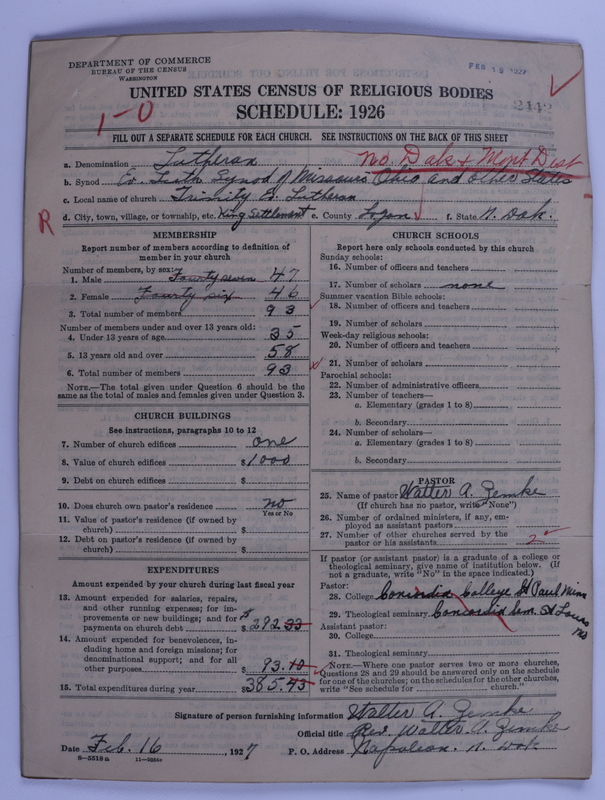 DEPARTMENT OF COMMERCE
BUREAU OF THE CENSUS
WASHINGTON
FEB 18 1927
UNITED STATES CENSUS OF RELIGIOUS BODIES
SCHEDULE: 1926
1-0
2112
FILL OUT A SEPARATE SCHEDULE FOR EACH CHURCH. SEE INSTRUCTIONS ON THE BACK OF THIS SHEET
a. Denomination Lutheran
No. Dak & Mont Dist
b. Synod Ev. Luth. Synod of Missouri, Ohio and other States
c. Local name of church Trinity Ev. Lutheran
R
d. City, town, village, or township, etc. King Settlement e. County Logan f. State N. Dak.
MEMBERSHIP
Report number of members according to definition of member in your church
Number of members, by sex:
1. Male Fourty seven 47
2. Female Fourty six 46
3. Total number of members 93
Number of members under and over 13 years old:
4. Under 13 years of age 35
5. 13 years old and over 58
6. Total number of members 93
NOTE.—The total given under Question 6 should be the same as the total of males and females given under Question 3.
CHURCH BUILDINGS
See instructions, paragraphs 10 to 12
7. Number of church edifices one
8. Value of church edifices $1000
9. Debt on church edifices $
10. Does church own pastor's residence no
Yes or No
11. Value of pastor's residence (if owned by church) $
12. Debt on pastor's residence (if owned by church) $
EXPENDITURES
Amount expended by your church during last fiscal year
13. Amount expended for salaries, repairs, and other running expenses; for improvements or new buildings; and for payments on church debt $292.33
14. Amount expended for benevolences, including home and foreign missions; for denominational support; and for all other purposes $93.10
15. Total expenditures during year $385.43
CHURCH SCHOOLS
Report here only schools conducted by this church
Sunday schools:
16. Number of officers and teachers
17. Number of scholars none
Summer vacation Bible schools:
18. Number of officers and teachers
19. Number of scholars
Week-day religious schools:
20. Number of officers and teachers
21. Number of scholars
Parochial schools:
22. Number of administrative officers
23. Number of teachers—
a. Elementary (grades 1 to 8)
b. Secondary
24. Number of scholars—
a. Elementary (grades 1 to 8)
b. Secondary
PASTOR
25. Name of pastor Walter A. Zemke
(If church has no pastor, write "None")
26. Number of ordained ministers, if any, employed as assistant pastors
27. Number of other churches served by the pastor or his assistants 2
If pastor (or assistant pastor) is a graduate of a college or theological seminary, give name of institution below. (If not a graduate, write "No" in the space indicated.)
Pastor:
28. College Concordia College St Paul Minn
29. Theological seminary Concordia Sem. St Louis Mo
Assistant pastor:
30. College
31. Theological seminary
NOTE.—Where one pastor serves two or more churches, Questions 28 and 29 should be answered only on the schedule for one of the churches; on the schedules for the other churches, write "See schedule for church."
Signature of person furnishing information Walter A. Zemke
Official title Rev. Walter A. Zemke
Date Feb. 16, 1927 P. O. Address Napoleon. N. Dak
8—5518a 11—